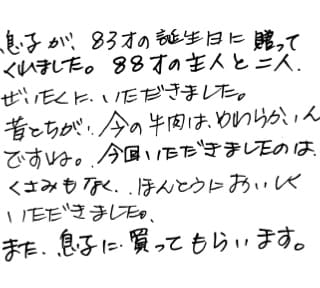 息子が、83才の誕生日に贈って
くれました。88才の主人と二人、
ぜいたくに、いただきました。
昔とちがい、今の牛肉は、やわらかいん
ですね。今回いただきましたのは、
くさみもなく、ほんとうにおいしく
いただきました。
また、息子に、買ってもらいます。